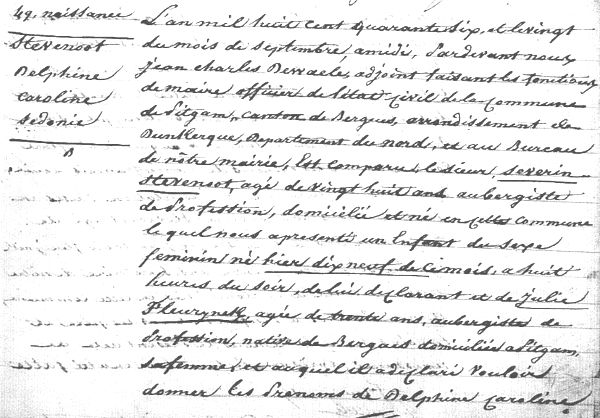 49. naissance
Stevenoot
Delphine
Caroline
Sedonie
L'an mil huit cent quarante six, et le vingt
du mois de septembre, amidi, Pardevant nous
jean charles Derwaele, adjoint faisant les fonctions
de maire officier de l'état Civil de la Commune
de Pitgam, canton de Bergues, arrondissement de
Dunkerque, Département du nord, et au Bureau
de nôtre mairie, Est comparu, le sieur, severin
Stevenoot, agé de vingt huit ans aubergiste
de Profession, domicilié et né en cette Commune
lequel nous a presenté un Enfant du sexe
feminin né hier dix neuf de ce mois, a huit
heures du soir, de lui déclarant et de Julie
Fleurynck, agée de trente ans, aubergiste de
Profession, native de Bergues domiciliée a Pitgam,
sa femme, et auquel il a déclaré vouloir
donner les Prénoms de Delphine Caroline